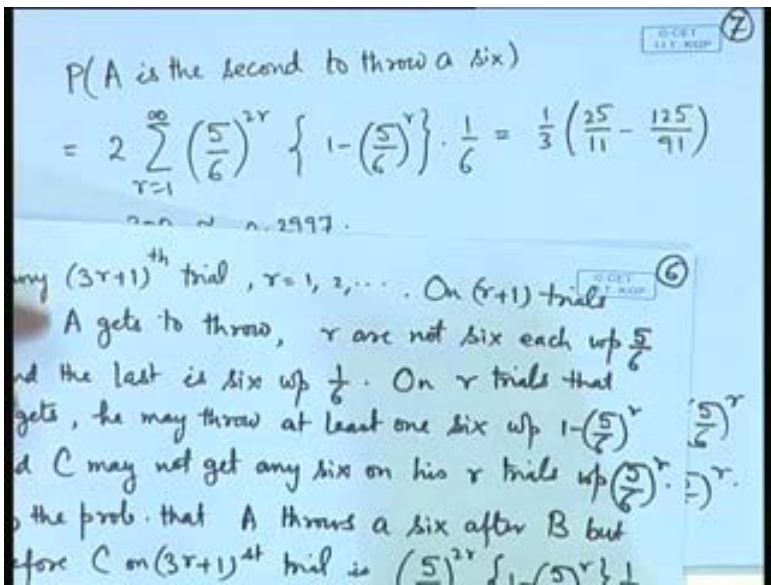 7
P(A is the second to throw a six)
= 2 ∑_{r=1}^{∞} (5/6)^{2r} { 1-(5/6)^r } . 1/6 = 1/3 (25/11 - 125/91)
.2997 .
6
(3r+1)^{th} trial, r=1, 2, .... On (r+1) trials
A gets to throw, r are not six each wp 5/6
the last is six wp 1/6 . On r trials that
gets, he may throw at least one six wp 1-(5/6)^r (5/6)^r
C may not get any six on his r trials wp (5/6)^r .
the prob. that A throws a six after B but
C on (3r+1)^{st} trial is (5/6)^{2r} {1-(5/6)^r} 1